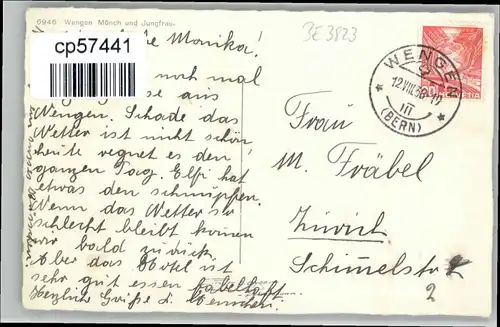 6946 Wengen Mönch und Jungfrau
BE 3823
cp57441
Monika!
noch mal
aus
Wengen. Schade das
Wetter ist nicht schön
heute regnet es den
ganzen Tag. Elsi hat
etwas den schnupfen.
Wenn das Wetter so
schlecht bleibt kommen
wir bald zurück.
Aber das Hotel ist
sehr gut essen fabelhaft
Herzliche Grüsse
WENGEN
12.VIII.38
III
(BERN)
Frau
M. Fräbel
Zürich
2